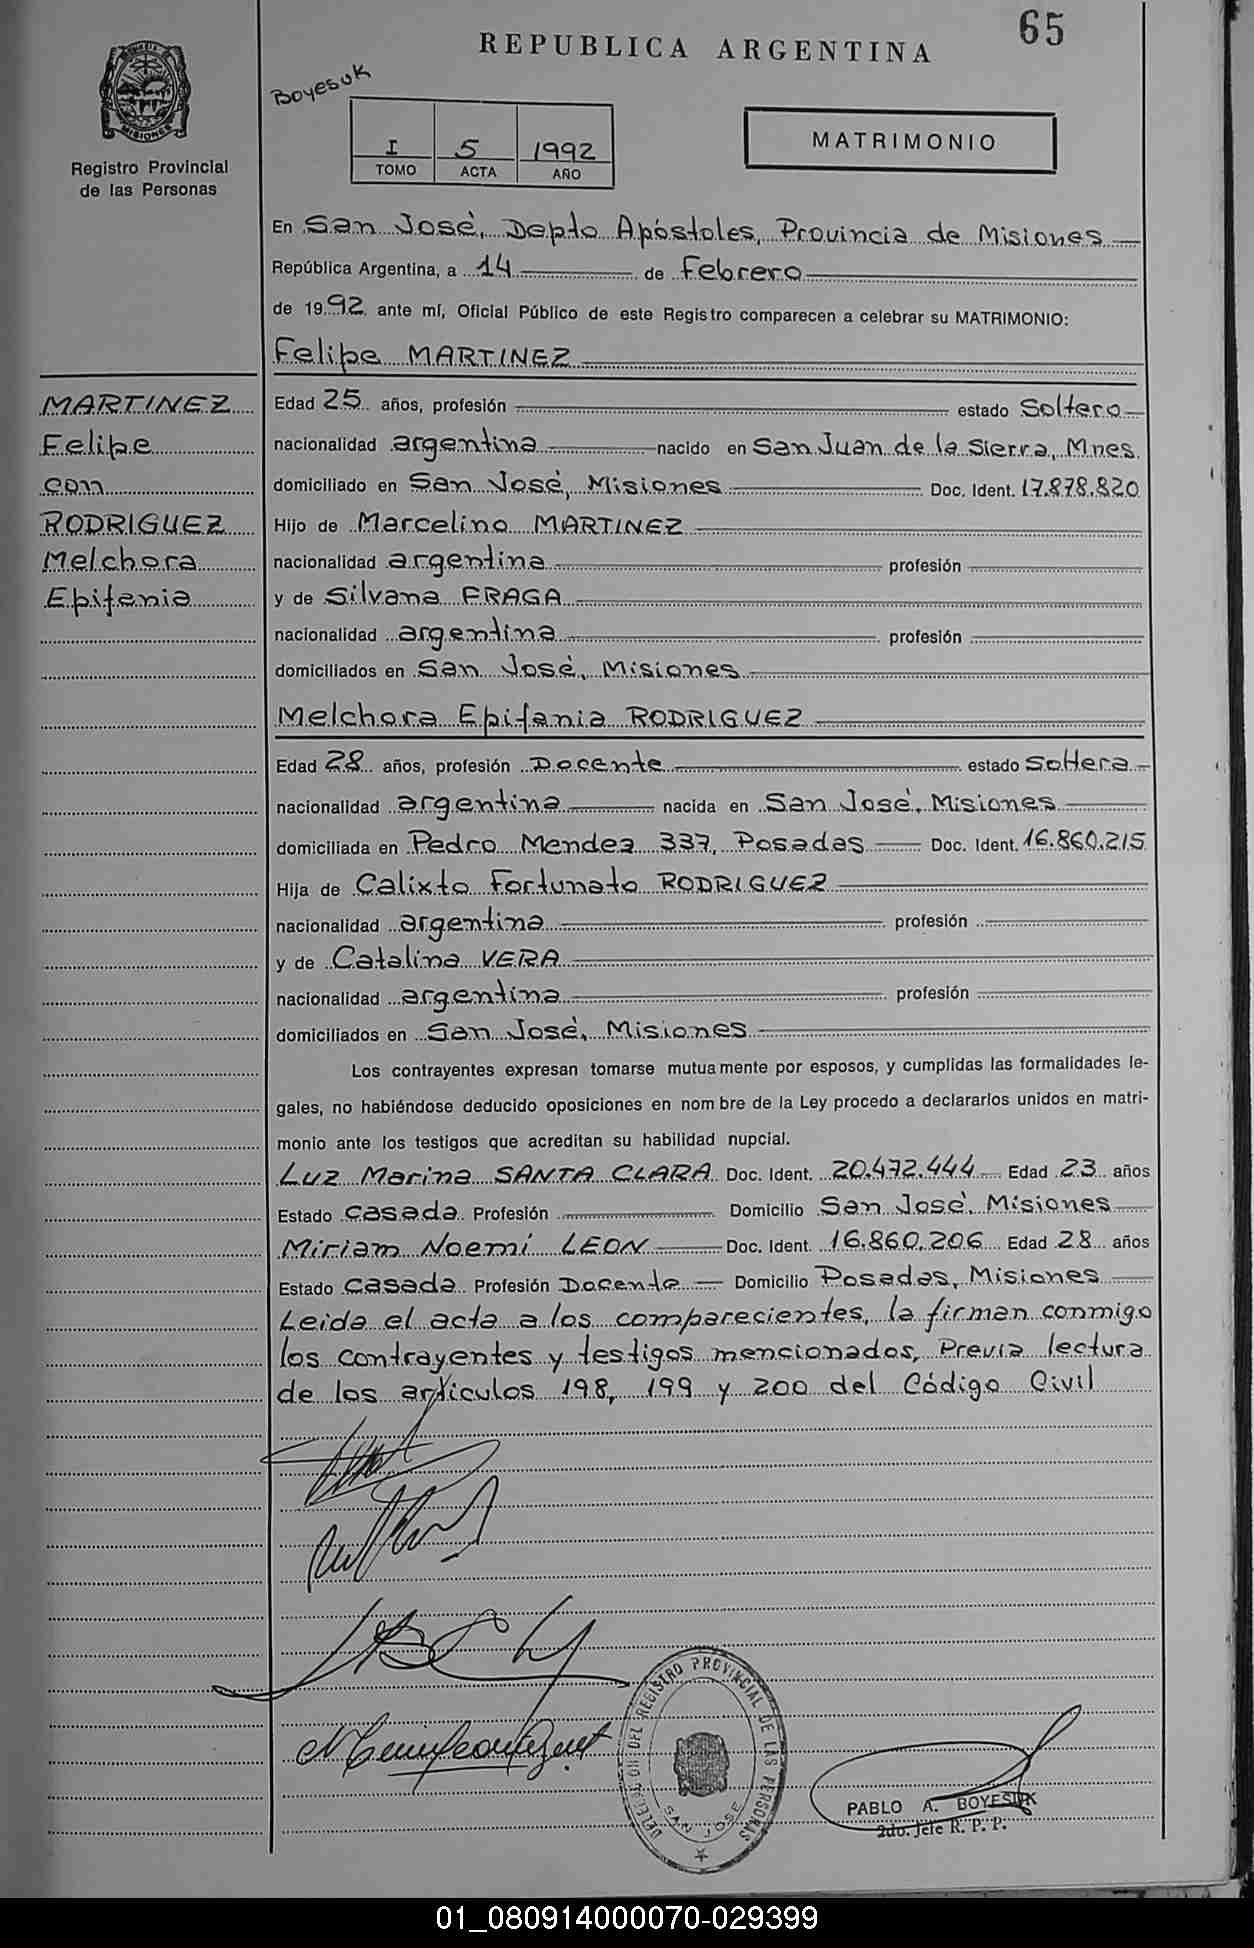 65
REPUBLICA ARGENTINA
Boyesuk
MISIONES
Registro Provincial
de las Personas
I 5 1992
TOMO ACTA AÑO
MATRIMONIO
En San José, Depto Apóstoles, Provincia de Misiones
República Argentina, a 14 de Febrero
de 1992 ante mí, Oficial Público de este Registro comparecen a celebrar su MATRIMONIO:
Felipe MARTINEZ
MARTINEZ
Felipe
con
RODRIGUEZ
Melchora
Epifania
Edad 25 años, profesión estado Soltero
nacionalidad argentina nacido en San Juan de la Sierra, Mnes.
domiciliado en San José, Misiones Doc. Ident. 17.878.820
Hijo de Marcelino MARTINEZ
nacionalidad argentina profesión
y de Silvana FRAGA
nacionalidad argentina profesión
domiciliados en San José, Misiones
Melchora Epifania RODRIGUEZ
Edad 28 años, profesión Docente estado Soltera
nacionalidad argentina nacida en San José, Misiones
domiciliada en Pedro Mendez 337, Posadas Doc. Ident. 16.860.215
Hija de Calixto Fortunato RODRIGUEZ
nacionalidad argentina profesión
y de Catalina VERA
nacionalidad argentina profesión
domiciliados en San José, Misiones
Los contrayentes expresan tomarse mutuamente por esposos, y cumplidas las formalidades le-
gales, no habiéndose deducido oposiciones en nombre de la Ley procedo a declararlos unidos en matri-
monio ante los testigos que acreditan su habilidad nupcial.
Luz Marina SANTA CLARA Doc. Ident. 20.472.444 Edad 23 años
Estado casada Profesión Domicilio San José, Misiones
Miriam Noemí LEON Doc. Ident. 16.860.206 Edad 28 años
Estado casada Profesión Docente Domicilio Posadas, Misiones
Leida el acta a los comparecientes, la firman conmigo
los contrayentes y testigos mencionados, Previa lectura
de los artículos 198, 199 y 200 del Código Civil
DELEGACION DEL REGISTRO PROVINCIAL DE LAS PERSONAS
SAN JOSE
PABLO A. BOYESUK
2do. Jefe R. P. P.
01_080914000070-029399